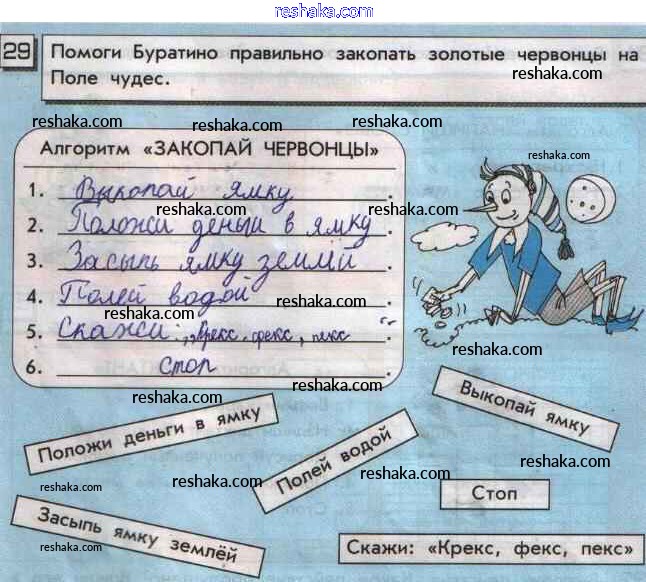 reshaka.com
29 Помоги Буратино правильно закопать золотые червонцы на
reshaka.com
Поле чудес.
reshaka.com
reshaka.com reshaka.com
Алгоритм «ЗАКОПАЙ ЧЕРВОНЦЫ»
reshaka.com
1. Выкопай ямку.
reshaka.com reshaka.com
2. Положи деньги в ямку.
3. Засыпь ямку землёй.
reshaka.com
4. Полей водой.
reshaka.com
5. Скажи: „Крекс, фекс, пекс“.
reshaka.com
6. Стоп.
reshaka.com
reshaka.com
Выкопай ямку
Положи деньги в ямку
reshaka.com
Полей водой
reshaka.com
reshaka.com
reshaka.com
Стоп
Засыпь ямку землёй
reshaka.com
Скажи: «Крекс, фекс, пекс»
reshaka.com
reshaka.com